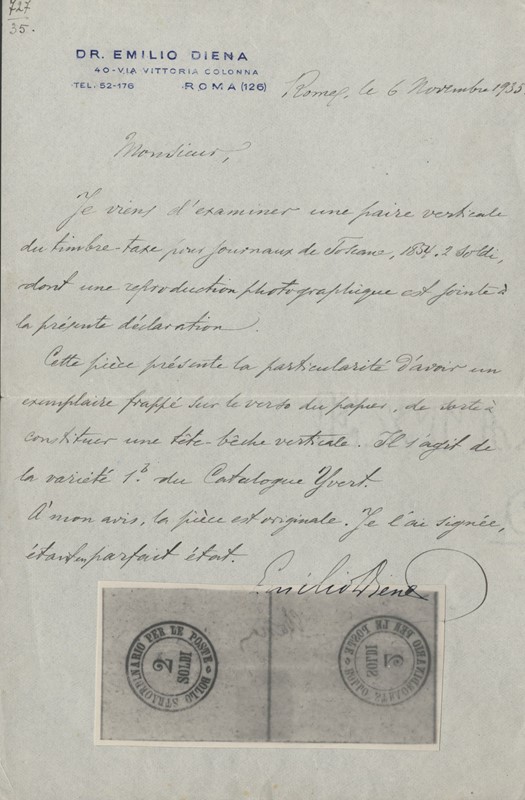 727
35.
DR. EMILIO DIENA
40-VIA VITTORIA COLONNA
TEL. 52-176 ROMA (126)
Rome, le 6 Novembre 1935.
Monsieur,
Je viens d'examiner une paire verticale
du timbre-taxe pour journaux de Toscane, 1854. 2 soldi,
dont une reproduction photographique est jointe à
la présente déclaration.
Cette pièce présente la particularité d'avoir un
exemplaire frappé sur le verso du papier, de sorte à
constituer une tête-bêche verticale. Il s'agit de
la variété 1b du Catalogue Yvert.
A mon avis, la pièce est originale. Je l'ai signée,
étant en parfait état.
Emilio Diena
BOLLO STRAORDINARIO PER LE POSTE
2
SOLDI
BOLLO STRAORDINARIO PER LE POSTE
2
SOLDI